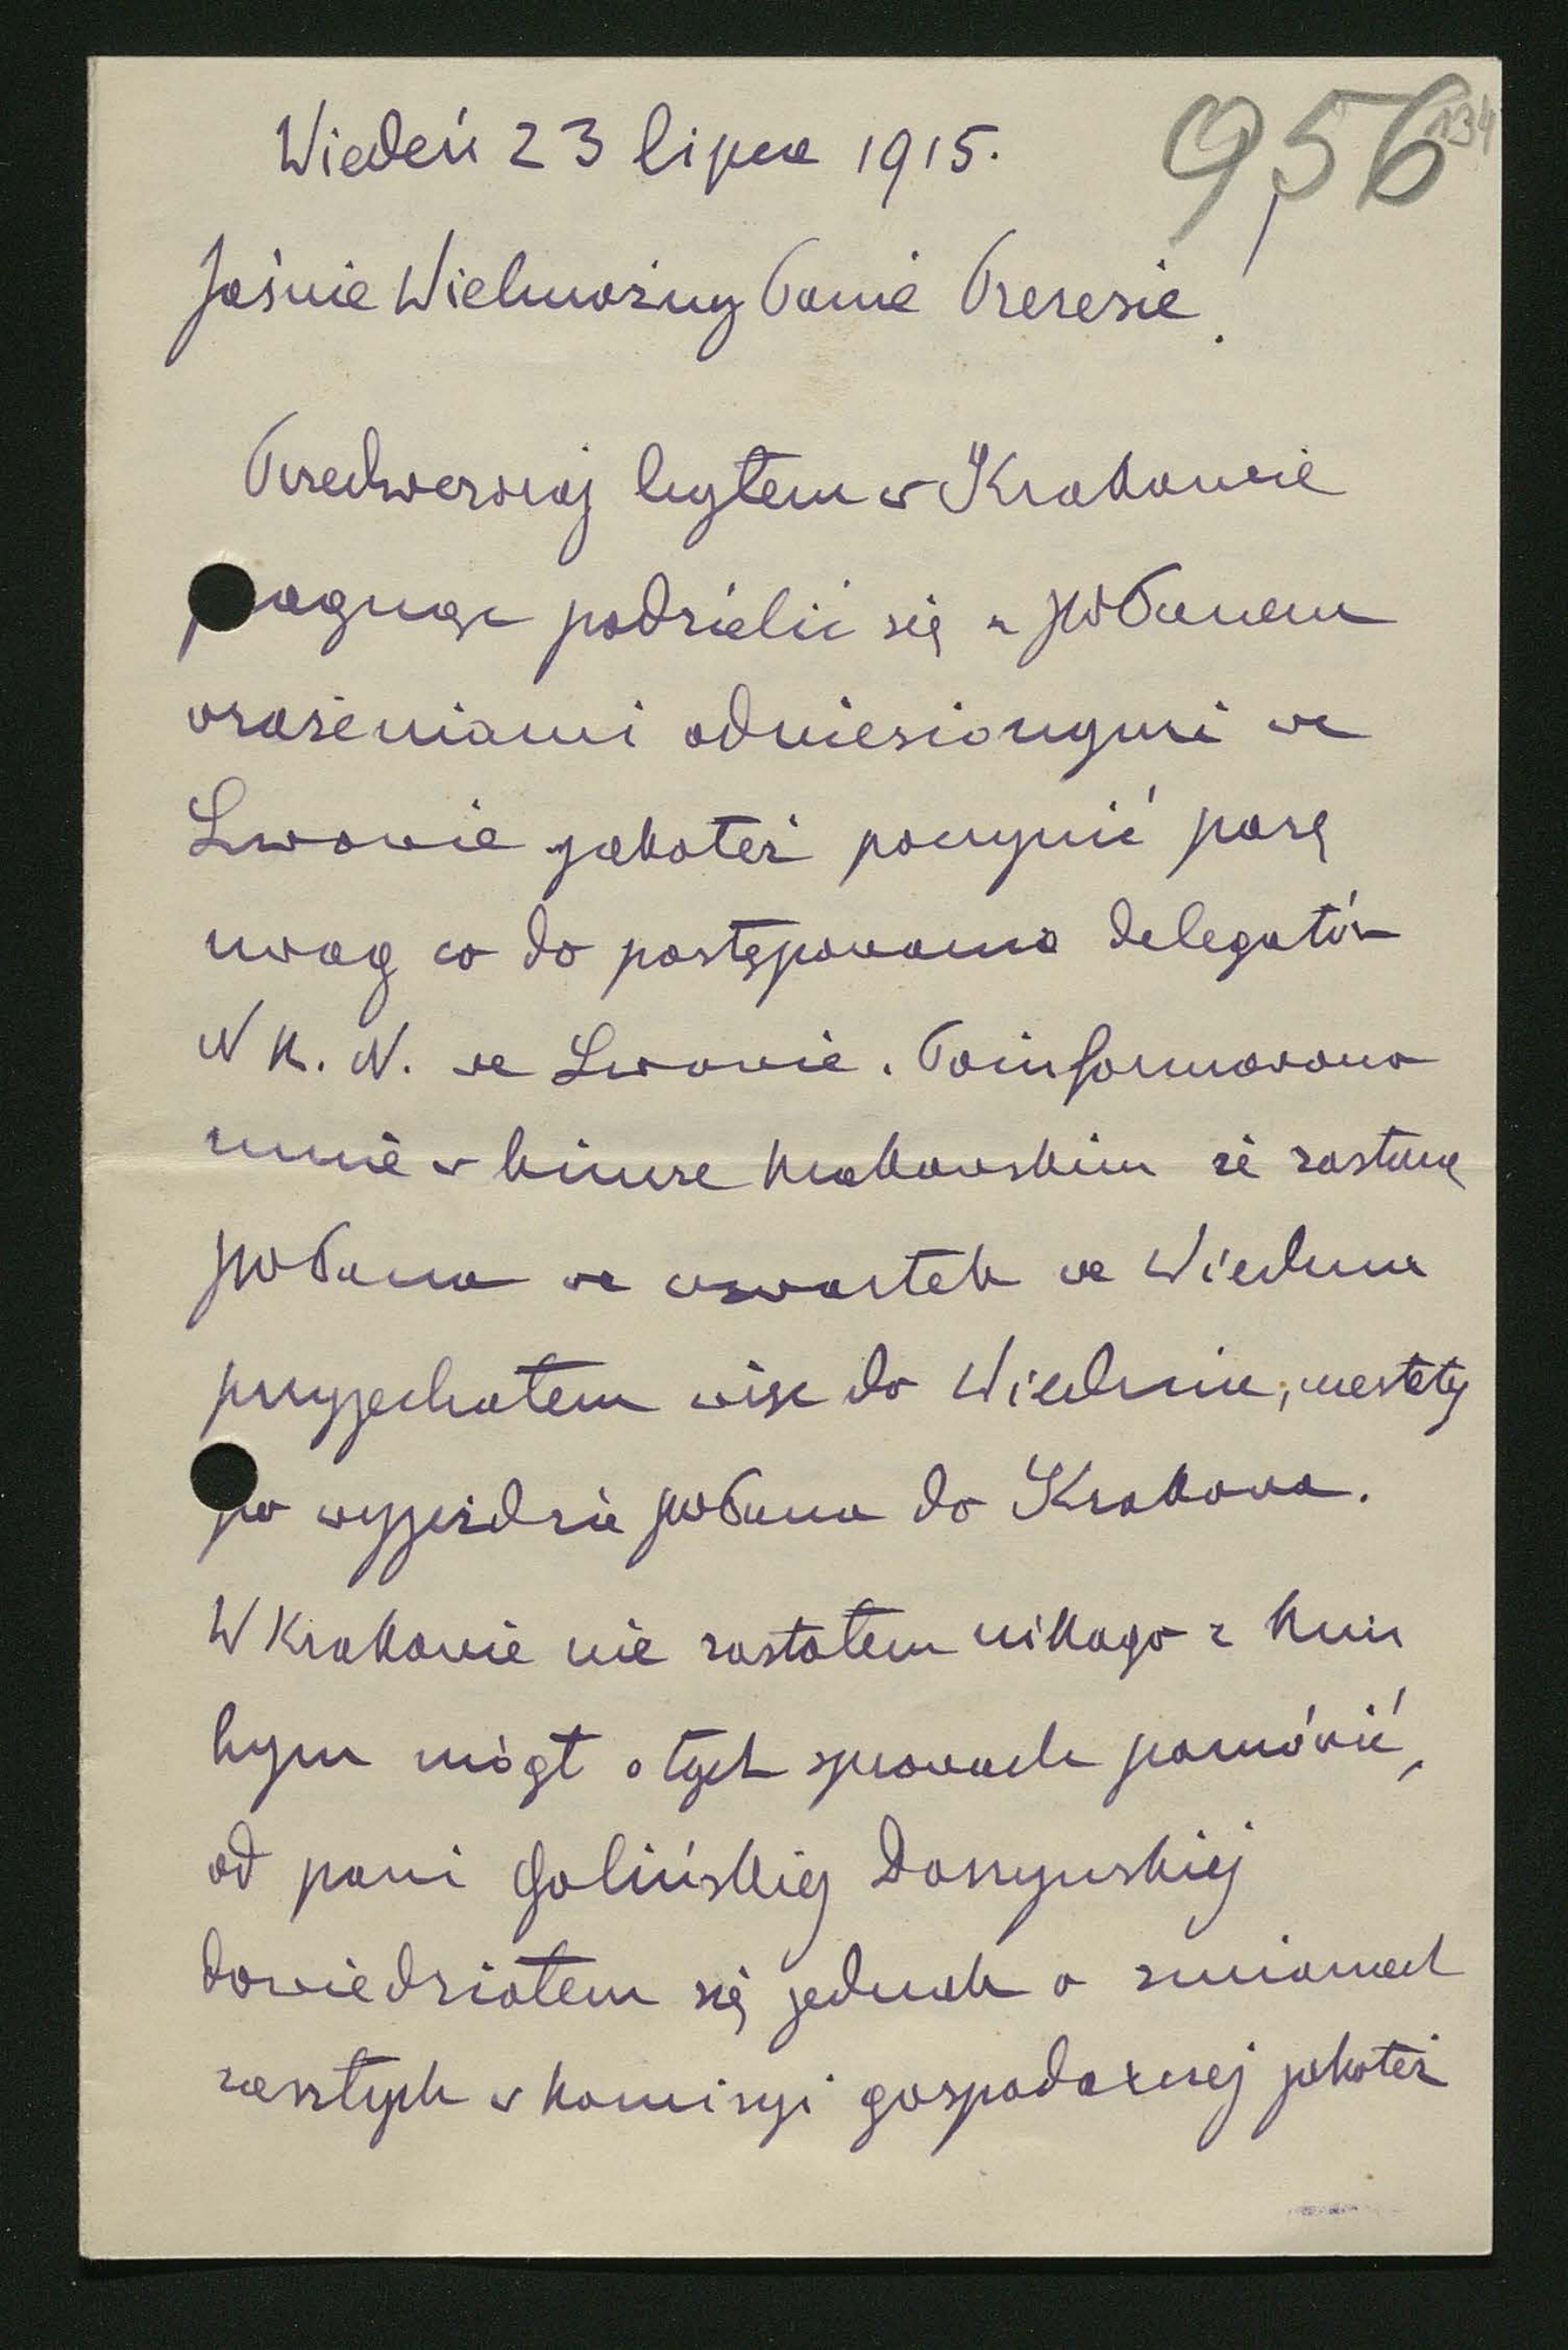 956
134
Wiedeń 23 lipca 1915.
Jaśnie Wielmożny Panie Prezesie!
Przedwczoraj byłem w Krakowie
pragnąc podzielić się z JWPanem
wrażeniami odniesionymi we
Lwowie jakoteż poczynić parę
uwag co do postępowania delegatów
N K. N. we Lwowie. Poinformowano
mnie w biurze krakowskim że zastanę
JWPana we czwartek we Wiedniu
przyjechałem więc do Wiednia, niestety
po wyjeździe JWPana do Krakowa.
W Krakowie nie zastałem nikogo z kim
bym mógł o tych sprawach pomówić,
od pani Golińskiej Daszyńskiej
dowiedziałem się jednak o zmianach
zaszłych w komisyi gospodarczej jakoteż